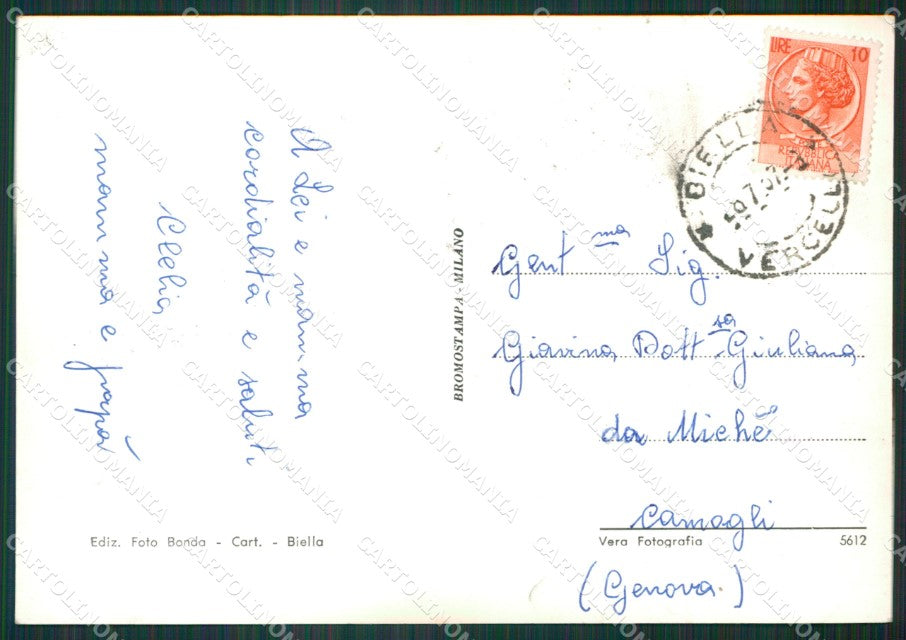 A Lei e mamma
cordialità e saluti
Clelia
mamma e papà
BROMOSTAMPA - MILANO
LIRE 10
REPUBBLICA
ITALIANA
BIELLA
VERCELLI
Gent ma Sig.
Giavina Dott sa Giuliana
da Michê
Camogli
(Genova)
Ediz. Foto Bonda - Cart. - Biella
Vera Fotografia
5612
CARTOLINOMANIA